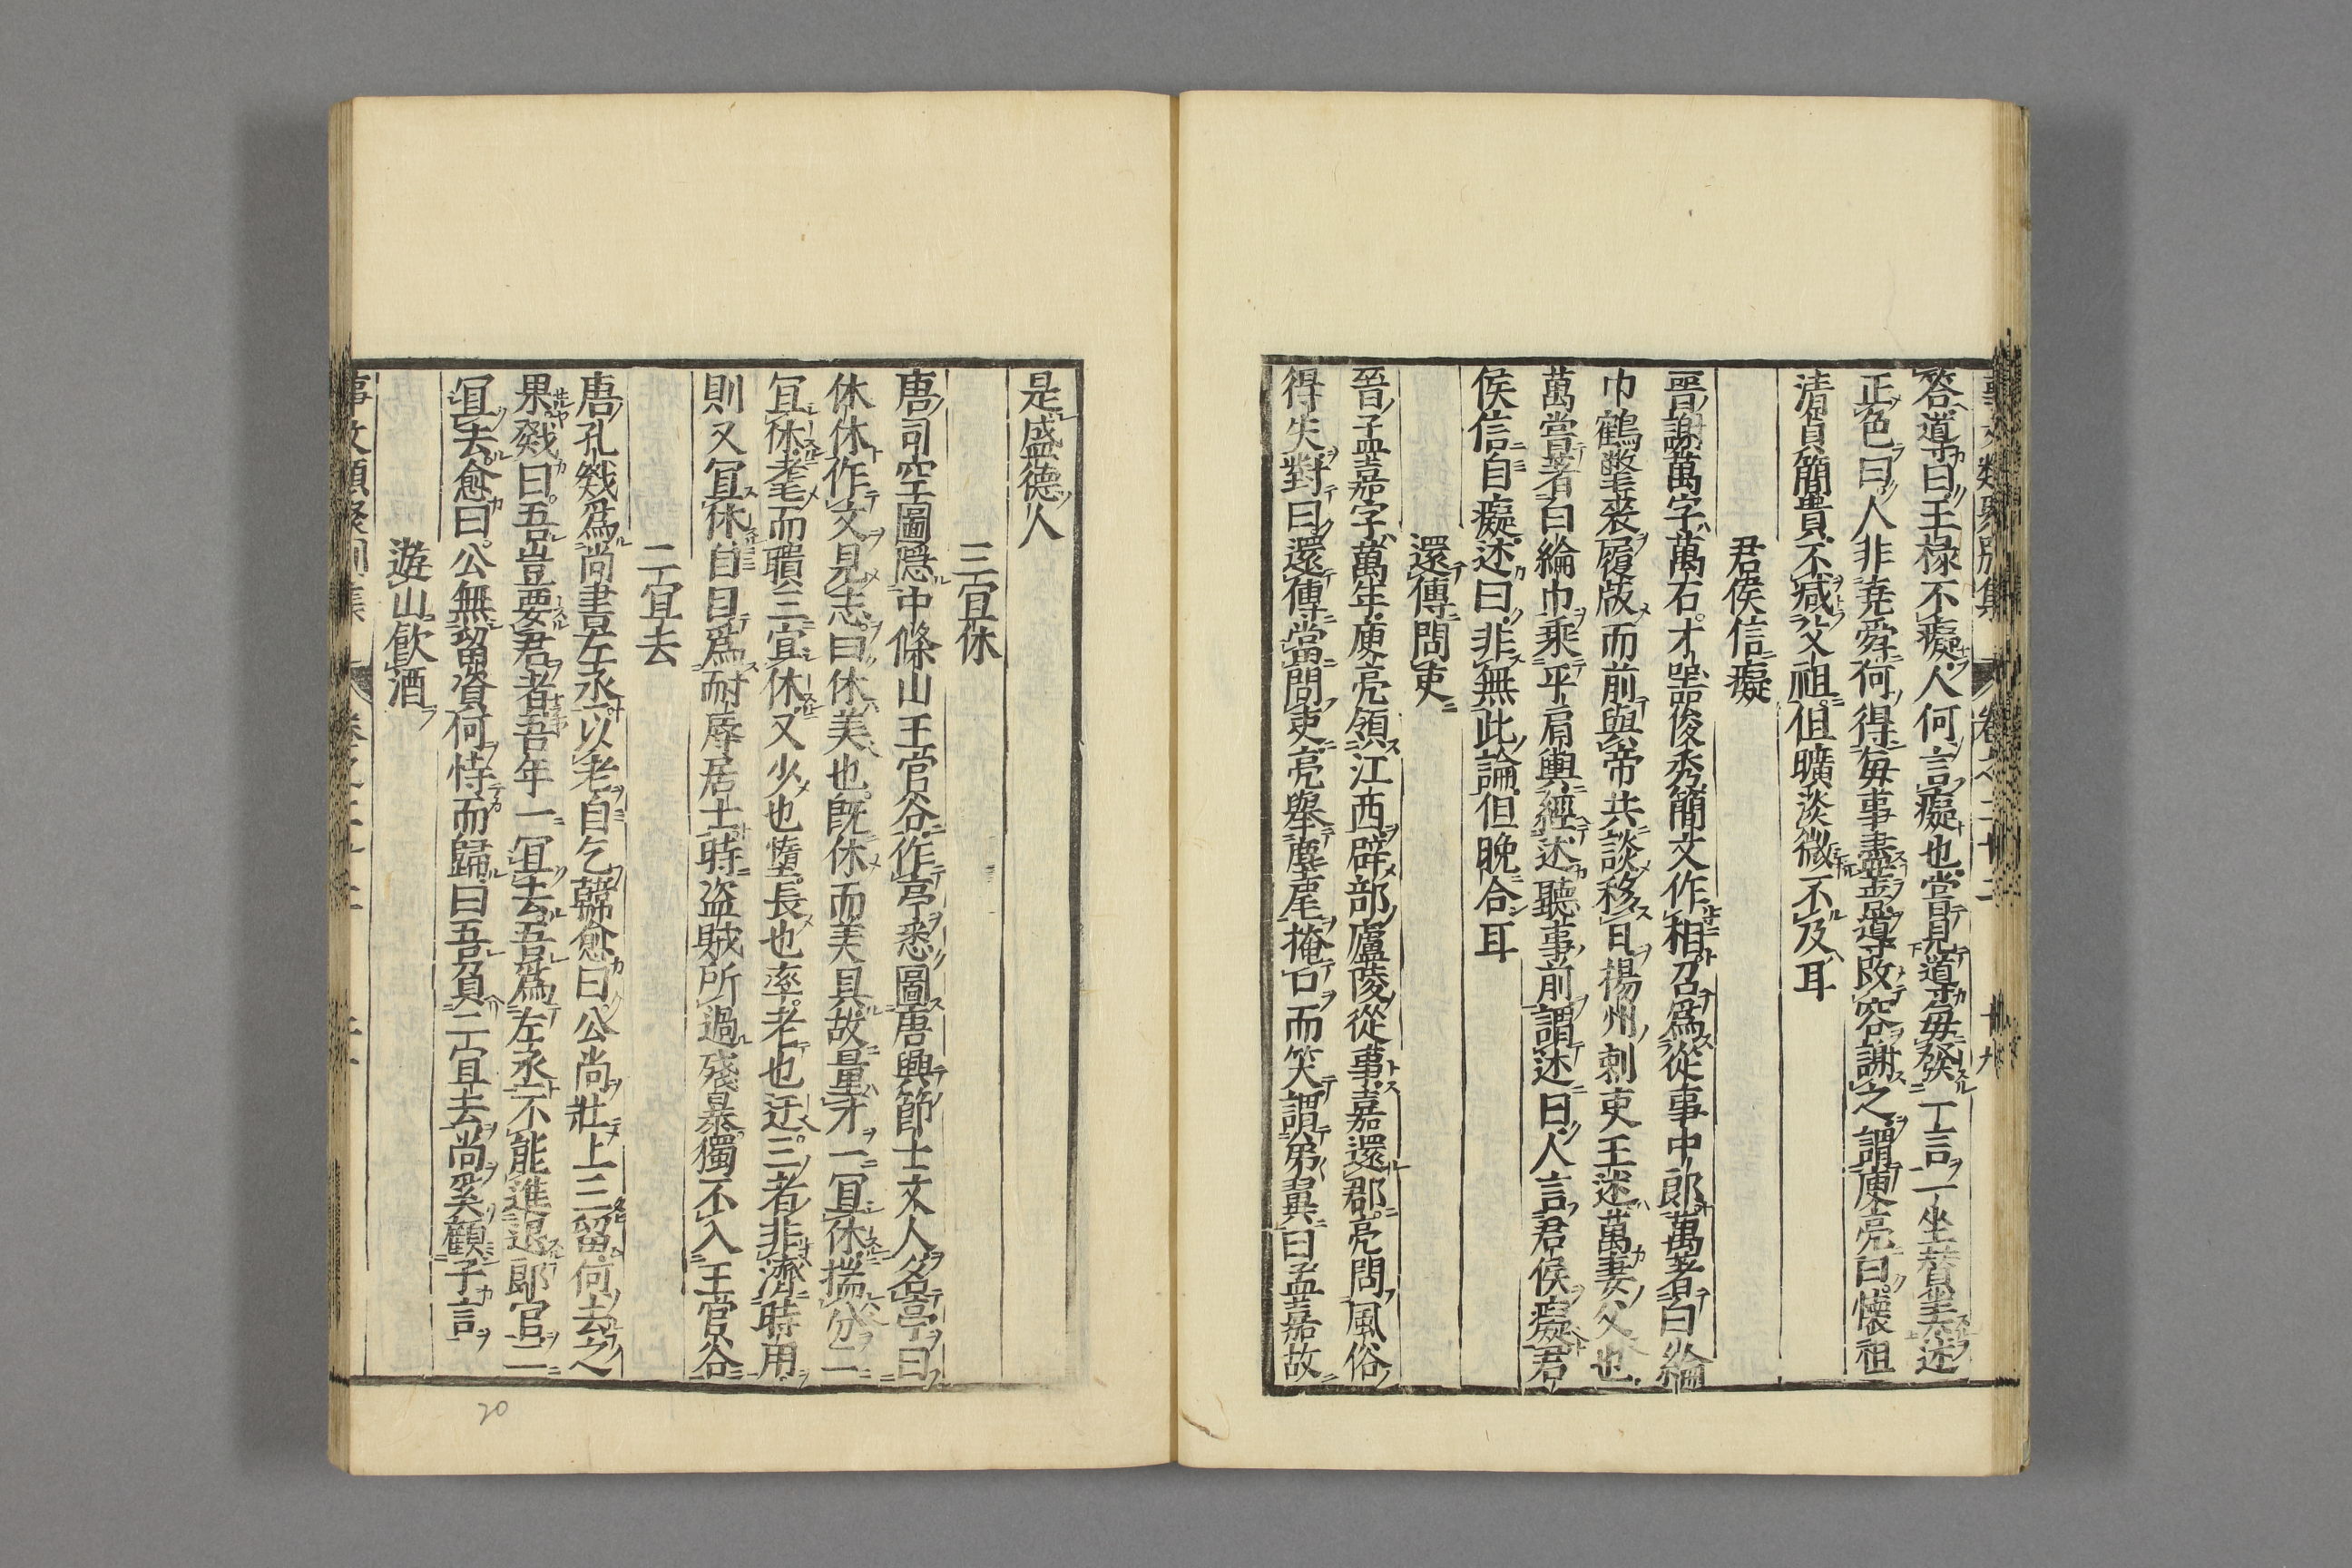 答道導曰王椽不癡人何言癡也嘗見道導毎發一言一坐莫不賛美述
正色曰人非堯舜何得毎事盡善導改容謝之謂庾亮曰懐祖
清貞簡貴不减父祖但曠淡微不及耳
君侯信癡
晉謝萬字萬石才噐俊秀簡文作相召爲從事中郎萬著白綸
巾鶴氅裘履版而前與帝共談移日揚州刺吏王述萬妻父也
萬嘗著白綸巾乘平肩輿經述聽事前謂述曰人言君侯癡君
侯信自癡述曰非無此論但晩合耳
還傳問吏
晉孟嘉字萬年庾亮領江西辟部廬陵從事嘉還郡亮問風俗
得失對曰還傳當問吏亮舉麈尾掩口而笑謂弟翼曰孟嘉故
是盛德人
三宜休
唐司空圖隱中條山王官谷作亭悉圖唐興節士文人名亭曰
休休作文見志曰休美也旣休而美具故量才一宜休揣分二
宜休耄而聵三宜休又少也墮長也率老也迂三者非濟時用
則又宜休自目爲耐辱居士時盗賊所過殘暴獨不入王官谷
二宜去
唐孔戣爲尚書左丞以老自乞韓愈曰公尚壯上三留何去之
果戣曰吾豈要君者吾年一宜去吾爲左丞不能進退郎官二
宜去愈曰公無留資何恃而歸曰吾負二宜去尚奚顧子言
遊山飲酒